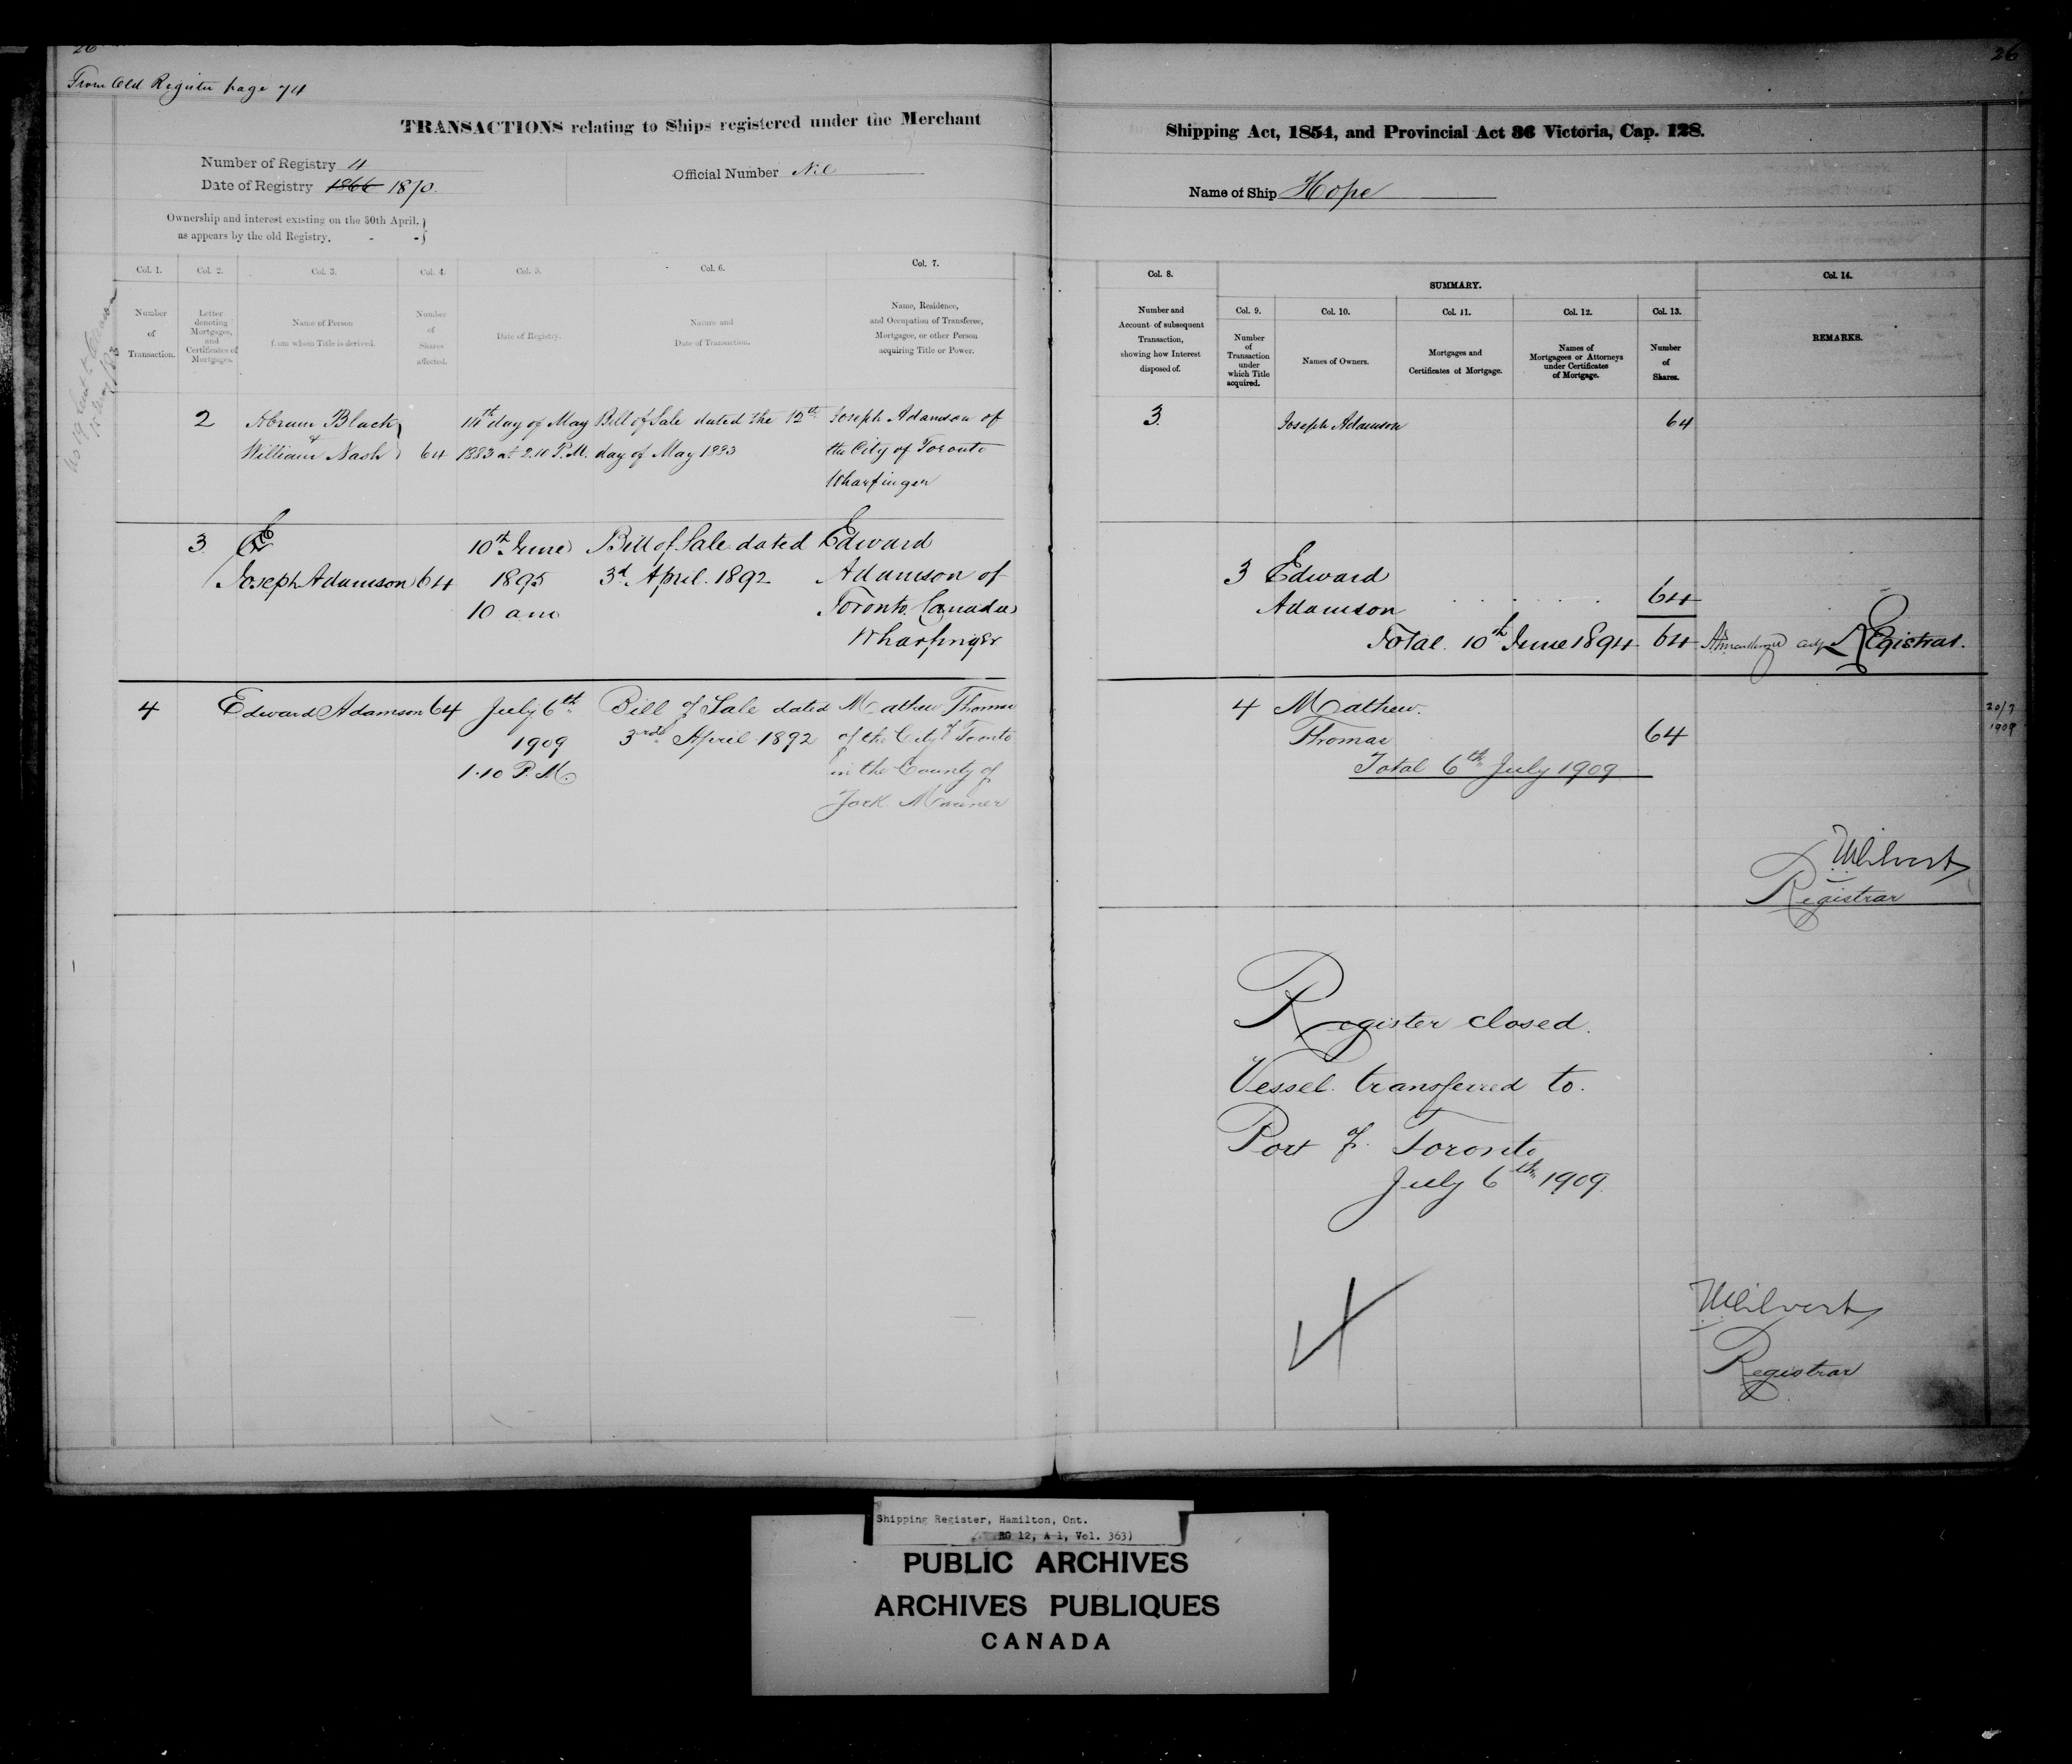 26
From Old Register page 74
TRANSACTIONS relating to Ships registered under the Merchant
Number of Registry 4
Date of Registry 1866 1870.
Official Number Nil
Ownership and interest existing on the 30th April.
as appears by the old Registry. - -
Col. 1. Col. 2. Col. 3. Col. 4. Col. 5. Col. 6. Col. 7.
Number
of
Transaction.
Letter
denoting
Mortgages,
and
Certificates of
Mortgages.
Name of Person
from whom Title is derived.
Number
of
Shares
affected.
Date of Registry.
Nature and
Date of Transaction.
Name, Residence,
and Occupation of Transferee,
Mortgagee, or other Person
acquiring Title or Power.
2 Abram Black 14th day of May Bill of Sale dated the 12th Joseph Adamson of
& William Nash 64 1883 at 2.10 P.M. day of May 1883 the City of Toronto
Wharfinger
3 10th June Bill of Sale dated Edward
Joseph Adamson 64 1895 3d. April. 1892 Adamson of
10 am Toronto Canada
Wharfinger
4 Edward Adamson 64 July 6th Bill of Sale dated Mathew Thomas
1909 3rd April 1892 of the City of Toronto
1.10 P.M. in the County of
York Mariner
26
Shipping Act, 1854, and Provincial Act 36 Victoria, Cap. 128.
Name of Ship Hope
Col. 8.
Number and
Account of subsequent
Transaction,
showing how Interest
disposed of.
SUMMARY.
Col. 9. Col. 10. Col. 11. Col. 12. Col. 13.
Number
of
Transaction
under
which Title
acquired.
Names of Owners.
Mortgages and
Certificates of Mortgage.
Names of
Mortgagees or Attorneys
under Certificates
of Mortgage.
Number
of
Shares.
Col. 14.
REMARKS.
3. Joseph Adamson 64
3 Edward
Adamson 64
Total. 10th June 1894 64 Registrar.
4 Mathew.
Thomas 64
Total 6th July 1909
20/7
1909
Registrar
Register closed.
Vessel transferred to.
Port of Toronto
July 6th 1909.
Registrar
Shipping Register, Hamilton, Ont.
RG 12, A 1, Vol. 363)
PUBLIC ARCHIVES
ARCHIVES PUBLIQUES
CANADA